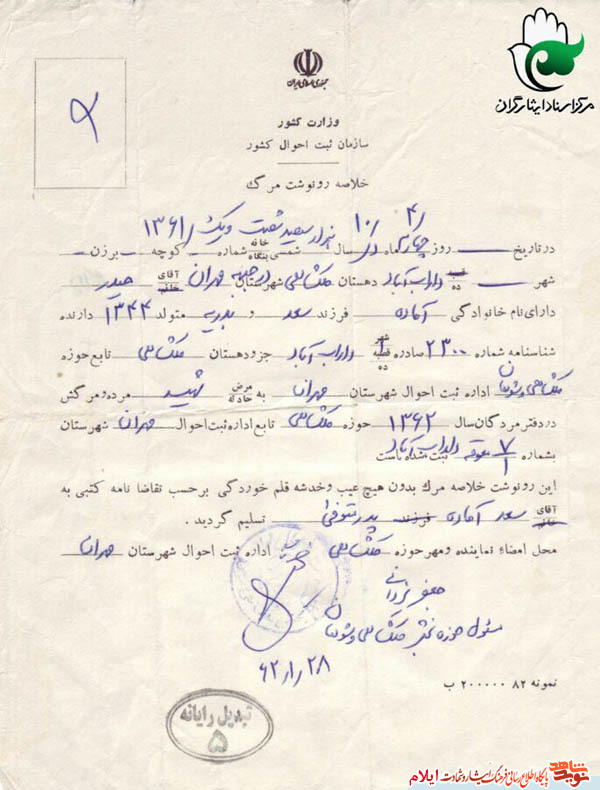 مرکز اسناد ایثارگران
جمهوری اسلامی ایران
وزارت کشور
سازمان ثبت احوال کشور
خلاصه رونوشت مرگ
۴/۱۰/ هزار سیصد شصت و یک /۱۳۶۱
در تاریخ روز چهارم ماه سال شمسی خانه بنگاه شماره کوچه برزن
شهر قصبه ده داراب آباد دهستان ملکشاهی شهرستان در جبهه مهران آقای خانم حیدر
دارای نام خانوادگی آماده فرزند سعد و بدریه متولد ۱۳۴۴ دارنده
شناسنامه شماره ۲۳۰۰ صادره شهر قصبه ده داراب آباد جزو دهستان ملکشاهی تابع حوزه
ملکشاهی و شوهان اداره ثبت احوال شهرستان مهران به مرض حادثه شهید مرده و مرگش
در دفتر مردگان سال ۱۳۶۲ حوزه ملکشاهی تابع اداره ثبت احوال مهران شهرستان
بشماره ۷/۱ داراب آباد ثبت شده است
این رونوشت خلاصه مرگ بدون هیچ عیب و خدشه قلم خوردگی برحسب تقاضا نامه کتبی به
آقای خانم سعد آماده فرزند پدر متوفی تسلیم گردید .
محل امضاء نماینده و مهر حوزه ملکشاهی اداره ثبت احوال شهرستان مهران
جعفر
مسئول حوزه ملکشاهی و شوهان
۶۲/۱/۲۸
نمونه ۸۲ ۲۰۰۰۰۰ ب
تبدیل رایانه
۵
نوید شاهد پایگاه اطلاع رسانی فرهنگ ایثار و شهادت ایلام